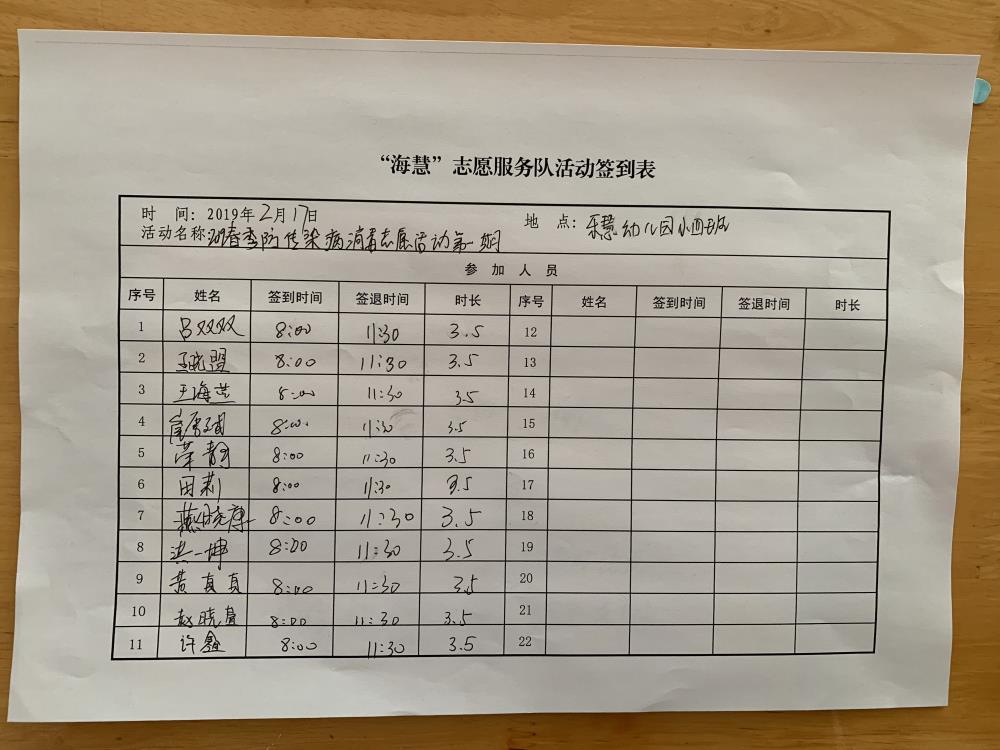 “海慧”志愿服务队活动签到表
时 间: 2019年2月17日 地 点: 乐慧幼儿园小四班
活动名称: 春季防传染病消毒志愿活动第一期
参 加 人 员
序号 姓名 签到时间 签退时间 时长 序号 姓名 签到时间 签退时间 时长
1 吕双双 8:00 11:30 3.5 12
2 孟晓盟 8:00 11:30 3.5 13
3 王海兰 8:00 11:30 3.5 14
4 8:00 11:30 3.5 15
5 荣静 8:00 11:30 3.5 16
6 田莉 8:00 11:30 3.5 17
7 8:00 11:30 3.5 18
8 洪一坤 8:00 11:30 3.5 19
9 黄真真 8:00 11:30 3.5 20
10 赵晓 8:00 11:30 3.5 21
11 许鑫 8:00 11:30 3.5 22